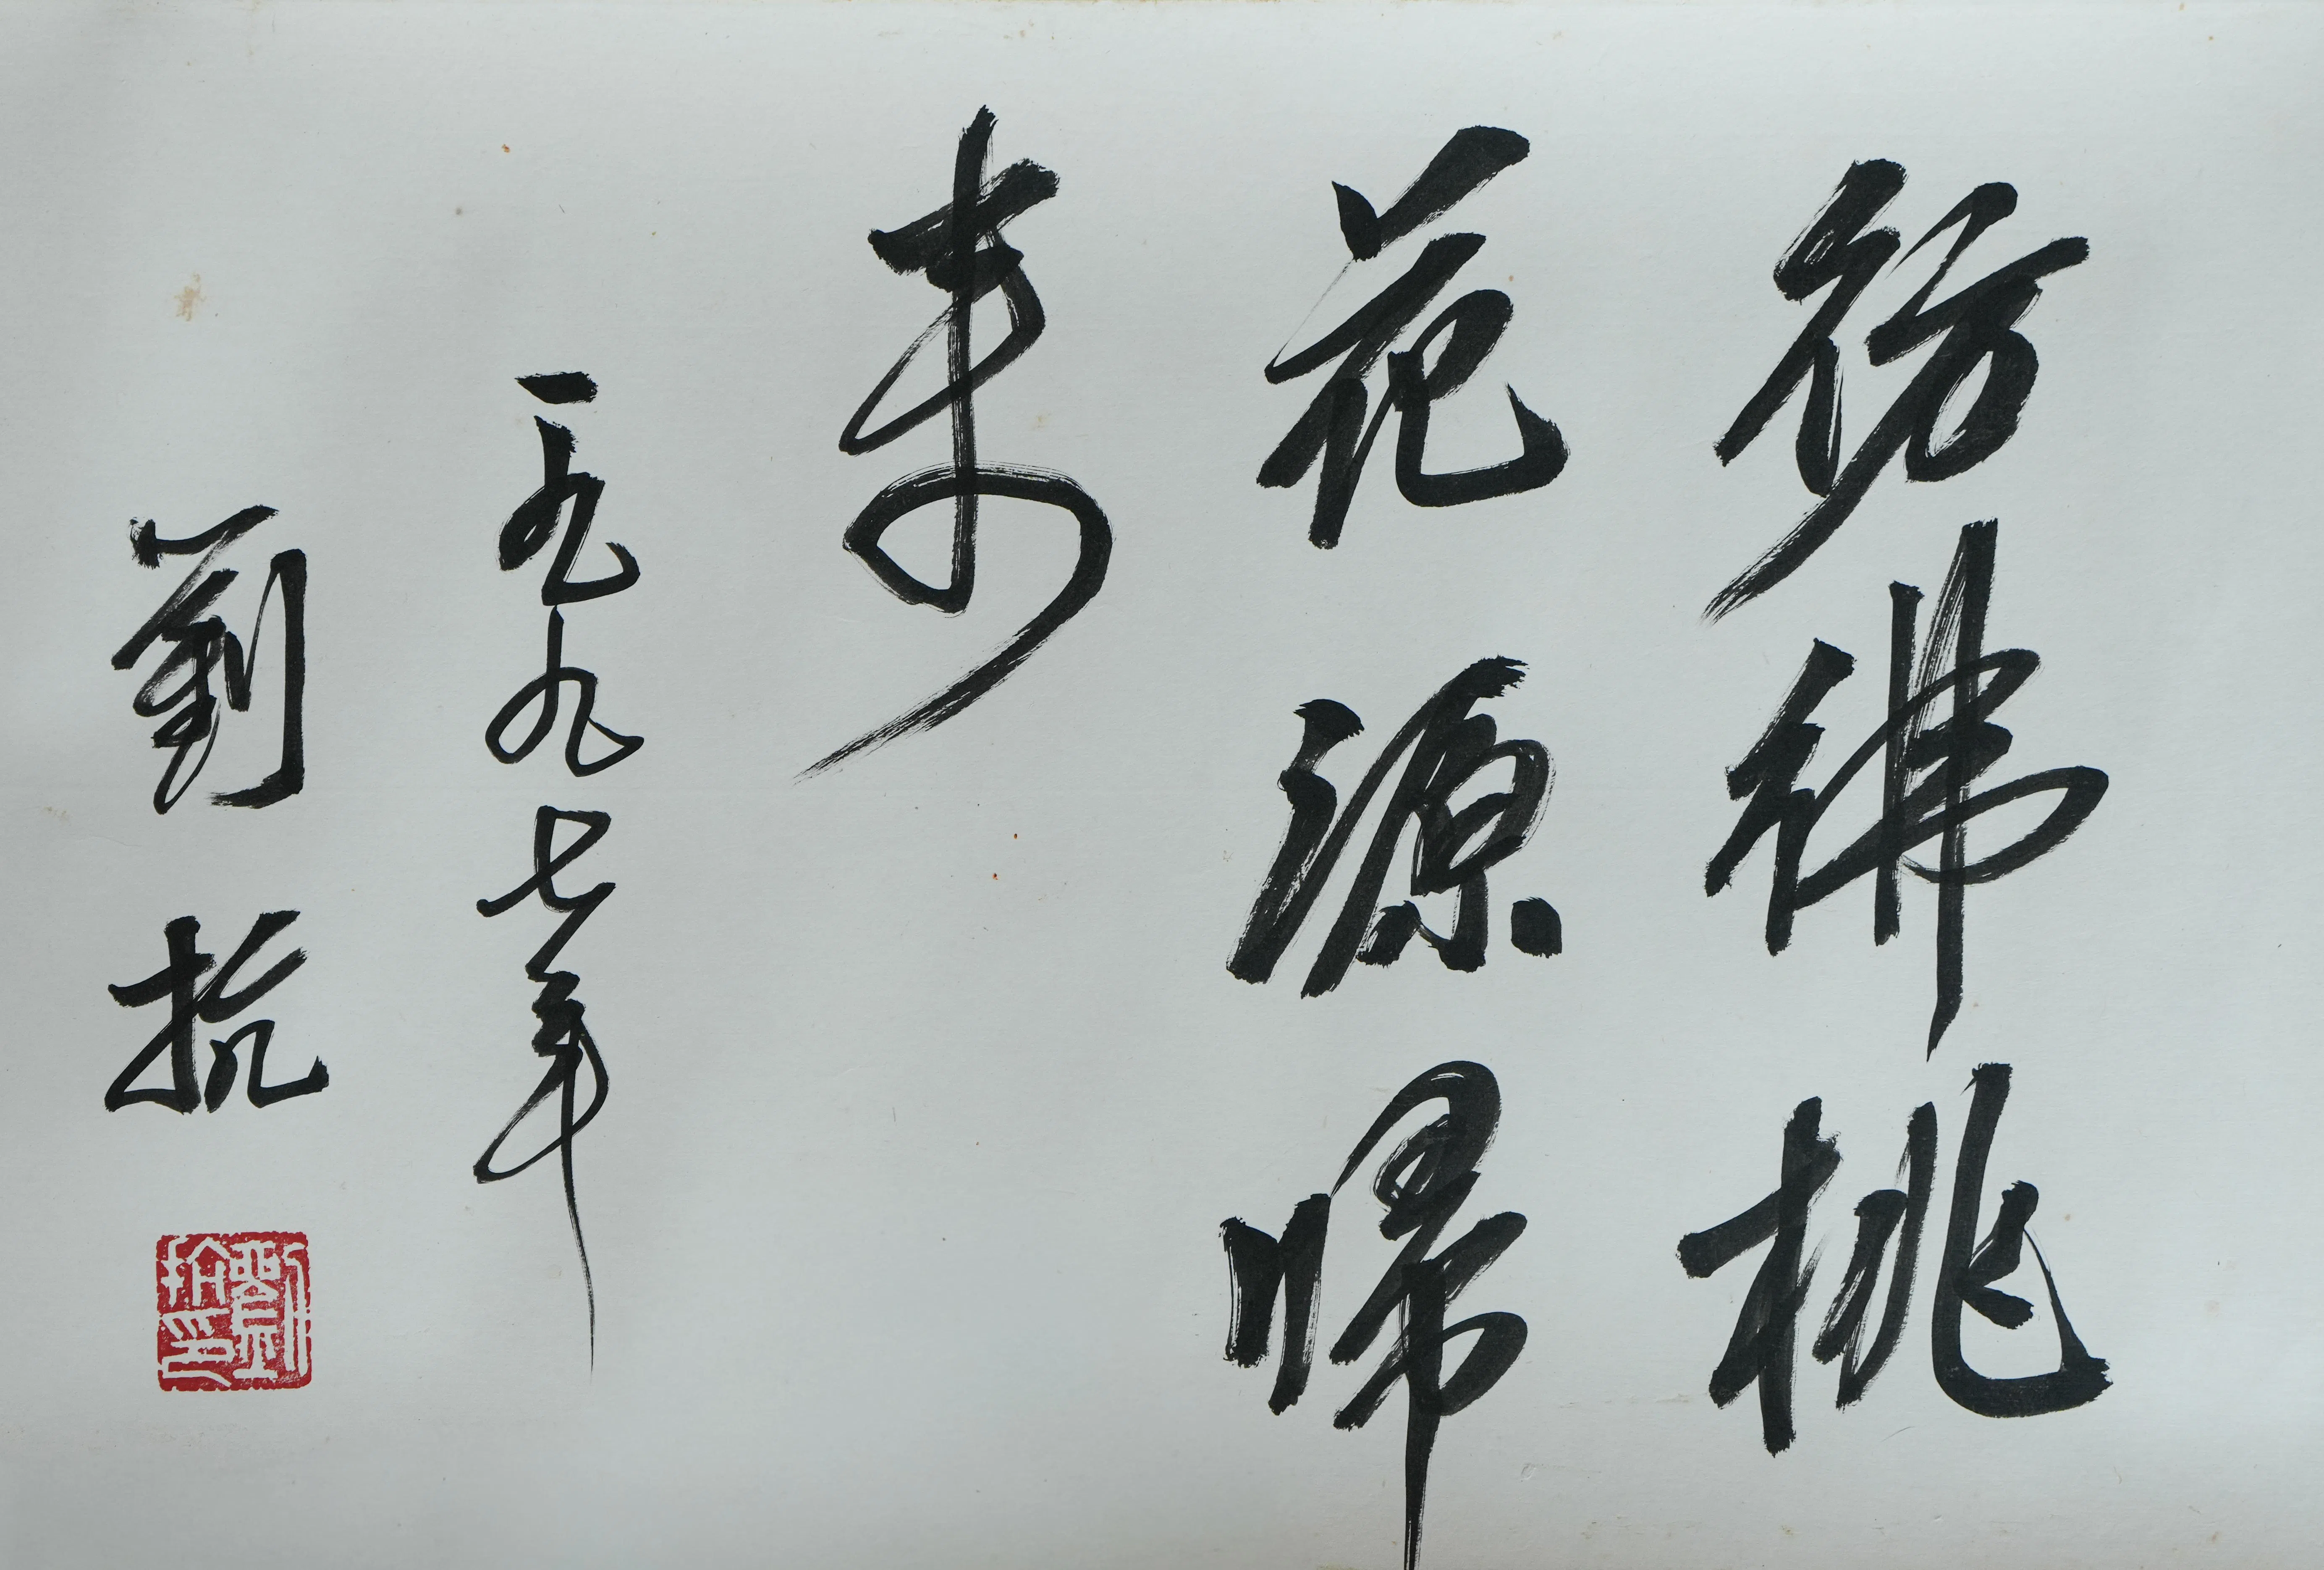 彷彿桃
花源歸
來
一九九七年
劉抗
劉抗印